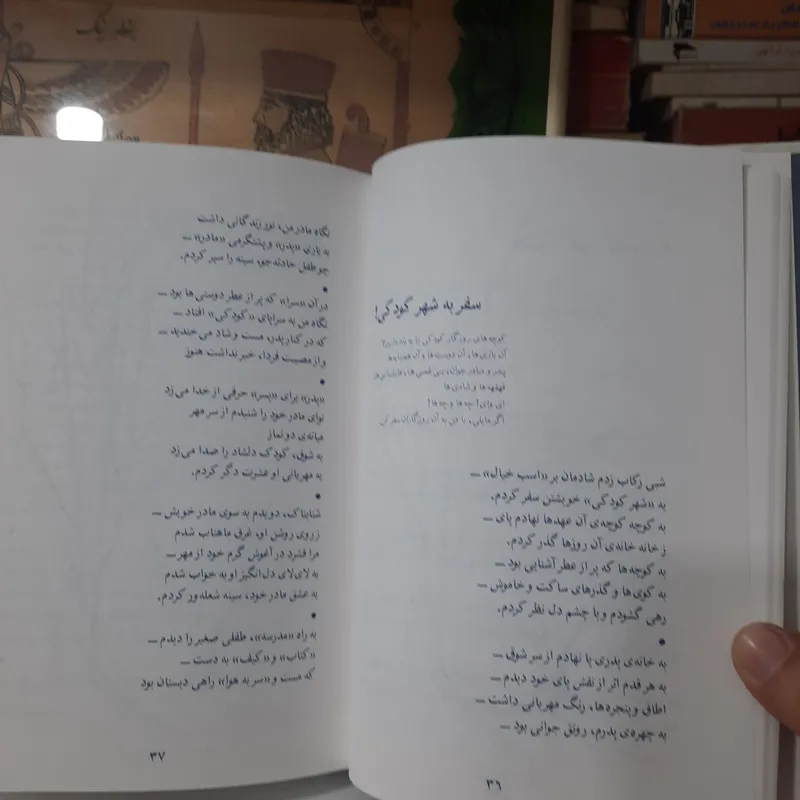 سفر به شهر کودکی!
کوچه‌های روزگار کودکی
آن بازی‌ها، آن دوست‌ها و آن
پدر و مادر جوان،
قهقهه‌ها و شادی‌ها
ای وای! چه‌ها و چه‌ها!
اگر مایلی، با من به آن روزگاران سفر کن
شبی رکاب زدم شادمان بر «اسب خیال» —
به «شهر کودکی» خویشتن سفر کردم.
به کوچه کوچه‌ی آن عهدها نهادم پای —
ز خانه خانه‌ی آن روزها گذر کردم.
به کوچه‌ها که پر از عطر آشنایی بود —
به کوی‌ها و گذرهای ساکت و خاموش —
رهی گشودم و با چشم دل نظر کردم.
•
به خانه‌ی پدری پا نهادم از سر شوق —
به هر قدم اثر از نقش پای خود دیدم —
اطاق و پنجره‌ها، رنگ مهربانی داشت —
به چهره‌ی پدرم، رونق جوانی بود —
۳۶
نگاه مادر من، نور زندگانی داشت
به یاری «پدر» و پشتگرمی «مادر» —
چو طفل حادثه‌جو، سینه را سپر کردم.
•
در آن «سرا» که پر از عطر دوستی‌ها بود —
نگاه من به سراپای «کودکی» افتاد —
که در کنار پدر، مست و شاد می‌خندید —
و از مصیبت فردا، خبر نداشت هنوز
•
«پدر» برای «پسر» حرفی از خدا می‌زد
نوای مادر خود را شنیدم از سر مهر
میانه‌ی دو نماز
به شوق، کودک دلشاد را صدا می‌زد
به مهربانی او عشرت دگر کردم.
•
شتابناک، دویدم به سوی مادر خویش —
ز روی روشن او، غرق ماهتاب شدم
مرا فشرد در آغوش گرم خود از مهر —
به لای‌لای دل‌انگیز او به خواب شدم
به عشق مادر خود، سینه شعله‌ور کردم.
•
به راه «مدرسه»، طفلی صغیر را دیدم —
«کتاب» و «کیف» به دست —
که مست و «سر به هوا» راهی دبستان بود
۳۷